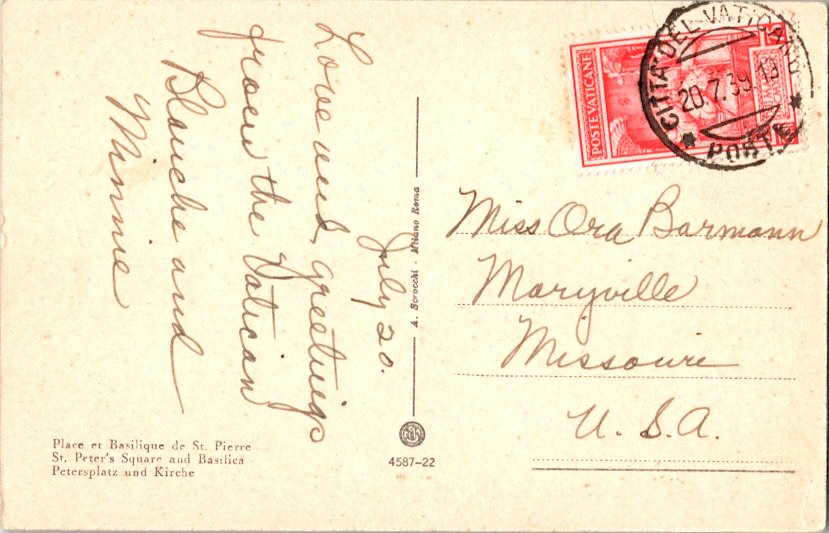 July 20.
Love and, greetings
from the Vatican
Blanche and
Minnie
POSTE VATICANE
CITTA DEL VATICANO
20.7.39.19
POSTE
Miss Ora Barmann
Maryville
Missouri
U. S. A.
A. Scrocchi - Milano Roma
4587-22
Place et Basilique de St. Pierre
St. Peter's Square and Basilica
Petersplatz und Kirche